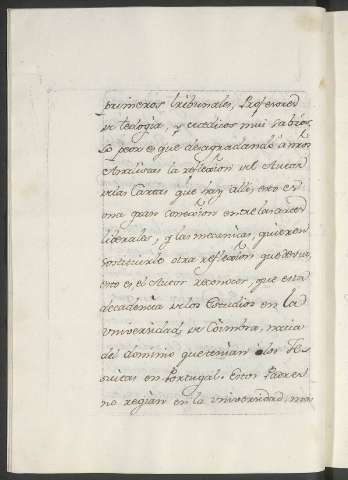 primeros tribunales, Profesores
de teologia, y medicos mui sabios.
Lo peor es que desagradando à nros
Analistas la reflexion del Autor
de las Cartas que hay alli, esto es
una gran conexion entre las artes
liberales, y las mecanicas, quieren
sostituirle otra reflexion, que deve,
esto es, el Autor reconocer, que esta
decadencia de los Estudios en la
Universidad de Coimbra, nacia
del dominio que tenian los Je
suitas en Portugal. Estos Padres
no regian en la Universidad, mas